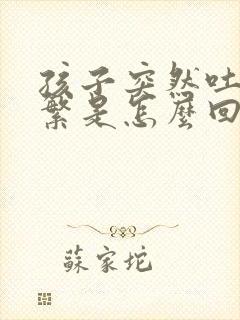 孩子突然吐
繁是怎麼回
蘇家坨